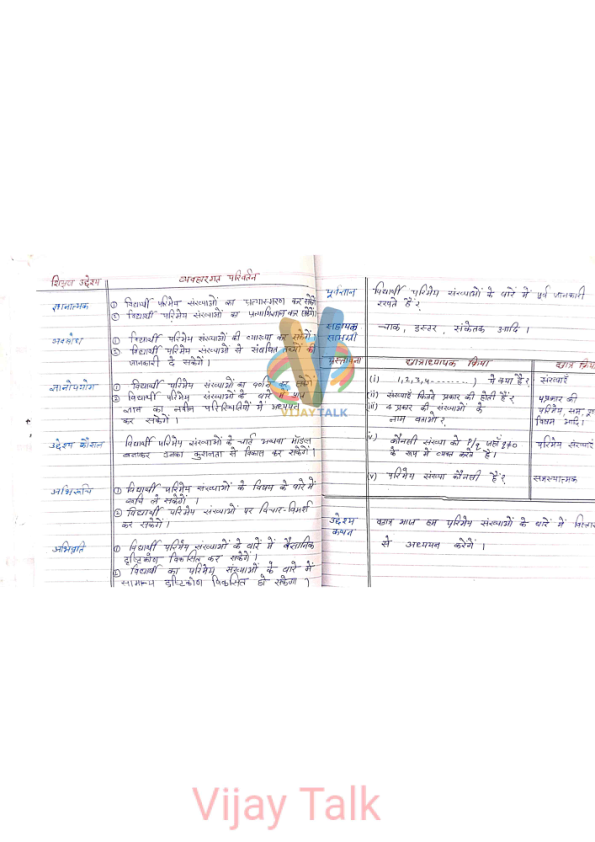 शिक्षण उद्देश्य
व्यवहारगत परिवर्तन
ज्ञानात्मक
① विद्यार्थी परिमेय संख्याओं का प्रत्यास्मरण कर सकेंगे
② विद्यार्थी परिमेय संख्याओं का प्रत्याभिज्ञान कर सकेंगे।
अवबोध
① विद्यार्थी परिमेय संख्याओं की व्याख्या कर सकेंगे।
② विद्यार्थी परिमेय संख्याओं से संबंधित तथ्यों की
जानकारी दे सकेंगे।
ज्ञानोपयोग
① विद्यार्थी परिमेय संख्याओं का प्रयोग कर सकेंगे
② विद्यार्थी परिमेय संख्याओं के बारे में प्राप्त
ज्ञान का नवीन परिस्थितियों में अध्ययन
कर सकेंगे।
उद्देश्य कौशल
विद्यार्थी परिमेय संख्याओं के चार्ट अथवा मॉडल
बनाकर उनका कुशलता से विकास कर सकेंगे।
अभिरूचि
① विद्यार्थी परिमेय संख्याओं के विषय के बारे में
रूचि ले सकेंगे।
② विद्यार्थी परिमेय संख्याओं पर विचार-विमर्श
कर सकेंगे।
अभिवृति
① विद्यार्थी परिमेय संख्याओं के बारे में वैज्ञानिक
दृष्टिकोण विकसित कर सकेंगे।
② विद्यार्थी का परिमेय संख्याओं के बारे में
सामान्य दृष्टिकोण विकसित हो सकेगा।
पूर्वज्ञान
विद्यार्थी परिमेय संख्याओं के बारे में पूर्व जानकारी
रखते हैं।
सहायक
सामग्री
चाक, डस्टर, संकेतक आदि।
प्रस्तावना
छात्राध्यापक क्रिया
छात्र क्रिया
(i) 1,2,3,4.......... ये क्या है?
संख्याएँ
(ii) संख्याएँ कितने प्रकार की होती हैं?
(iii) प्रकार की संख्याओं के
नाम बताओ?
प्रकार की
परिमेय, सम,
विषम आदि।
कौनसी संख्या को P/q जहाँ q≠0
के रूप में व्यक्त करते हैं।
परिमेय संख्याएँ
(v) परिमेय संख्या कौनसी हैं?
समस्यात्मक
उद्देश्य
कथन
आज हम परिमेय संख्याओं के बारे में विस्तार
से अध्ययन करेंगें।
VIJAY TALK
Vijay Talk